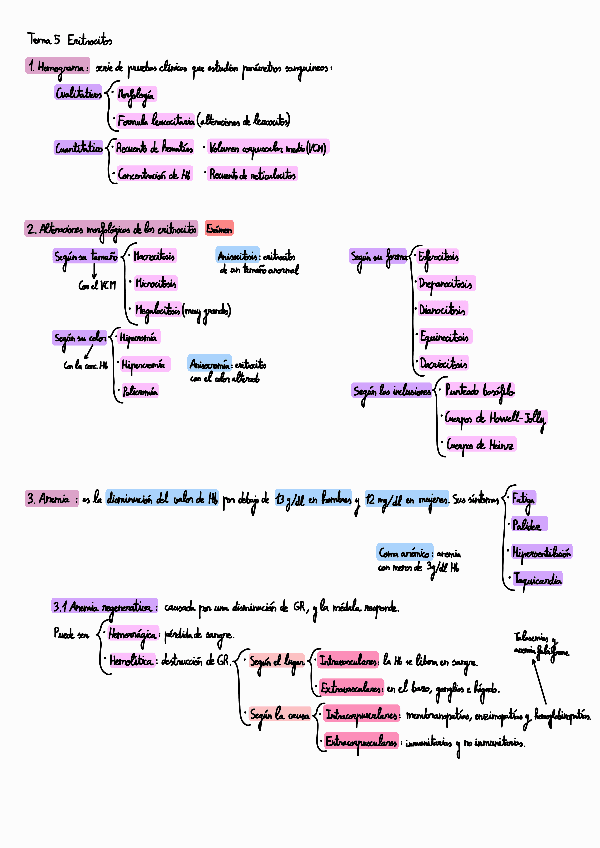 Tema 5 Eritrocitos
1. Hemograma: serie de pruebas clínicas que estudian parámetros sanguíneos:
Cualitativos
· Morfología
· Formula leucocitaria (alteraciones de leucocitos)
Cuantitativo
· Recuento de hematíes · Volumen corpuscular medio (VCM)
· Concentración de Hb · Recuento de reticulocitos
2. Alteraciones morfológicas de los eritrocitos Exámen
Según su tamaño
Con el VCM
· Macrocitosis
· Microcitosis
· Megalocitosis (muy grandes)
Anisocitosis: eritrocitos
de un tamaño anormal
Según su color
Con la conc. Hb
· Hipocromía
· Hipercromía
· Policromía
Anisocromía: eritrocitos
con el color alterado
Según su forma
· Esferocitosis
· Drepanocitosis
· Dianocitosis
· Equinocitosis
· Dacriocitosis
Según las inclusiones
· Punteado basófilo
· Cuerpos de Howell-Jolly
· Cuerpos de Heinz
3. Anemia: es la disminución del valor de Hb por debajo de 13 g/dl en hombres y 12 mg/dl en mujeres. Sus síntomas
· Fatiga
· Palidez
· Hiperventilación
· Taquicardia
Coma anémico: anemia
con menos de 3g/dl Hb
3.1 Anemia regenerativa: causada por una disminución de GR, y la médula responde.
Puede ser
· Hemorrágica: pérdida de sangre.
· Hemolítica: destrucción de GR
· Según el lugar
· Intravasculares: la Hb se libera en sangre.
· Extravasculares: en el bazo, ganglios e hígado.
· Según la causa
· Intracorpusculares: membranopatías, enzimopatías y hemoglobinopatías.
· Extracorpusculares: inmunitarias y no inmunitarias.
Talasemias y
anemia falciforme